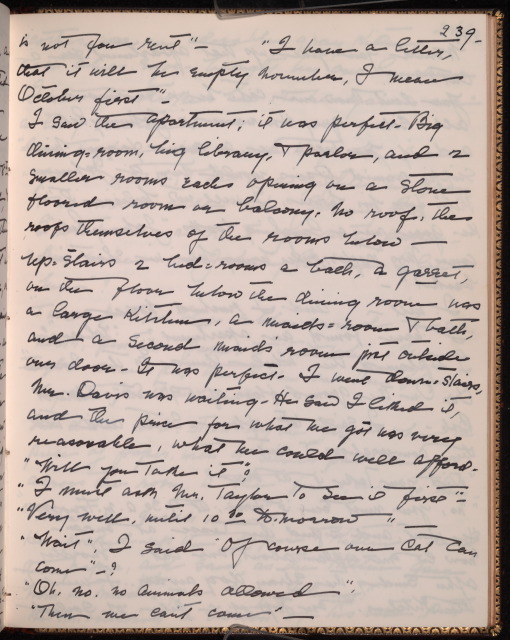 239-
is not for rent"- "I have a letter,
that it will be empty November, I mean
October first"-
I saw the apartment; it was perfect- Big
dining-room, big library, & parlor, and 2
smaller rooms each opening on a stone
floored room or balcony. No roof, the
roofs themselves of the rooms below -
Up-stairs 2 bed=rooms a bath, a garret,
on the floor below the dining room was
a large kitchen, a maids=room & bath,
and a second maids room just outside
our door- It was perfect- I went down=stairs,
Mr. Davis was waiting- He saw I liked it,
and the price for what we got was very
reasonable, what we could well afford-
"Will you take it"?
"I must ask Mr. Taylor to see it first"-
"Very well, until 10 00 to-morrow"
"Wait", I said "Of course our cat can
come"-?
"Oh, no. no animals allowed".
"Then we can't come"-